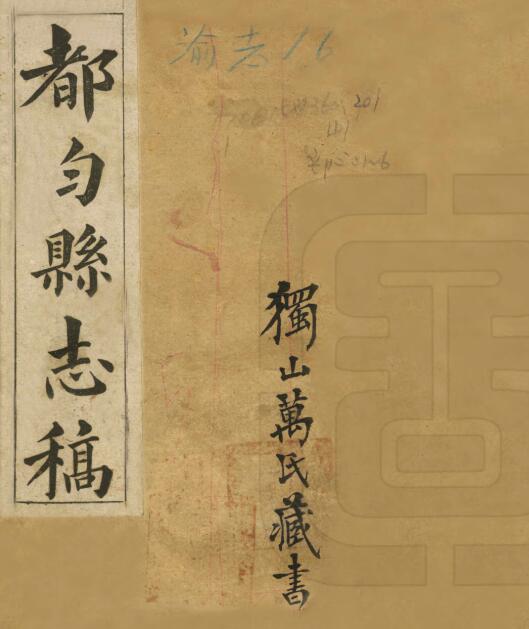 都匀縣志稿
渝志 1.6
201
獨山萬氏藏書